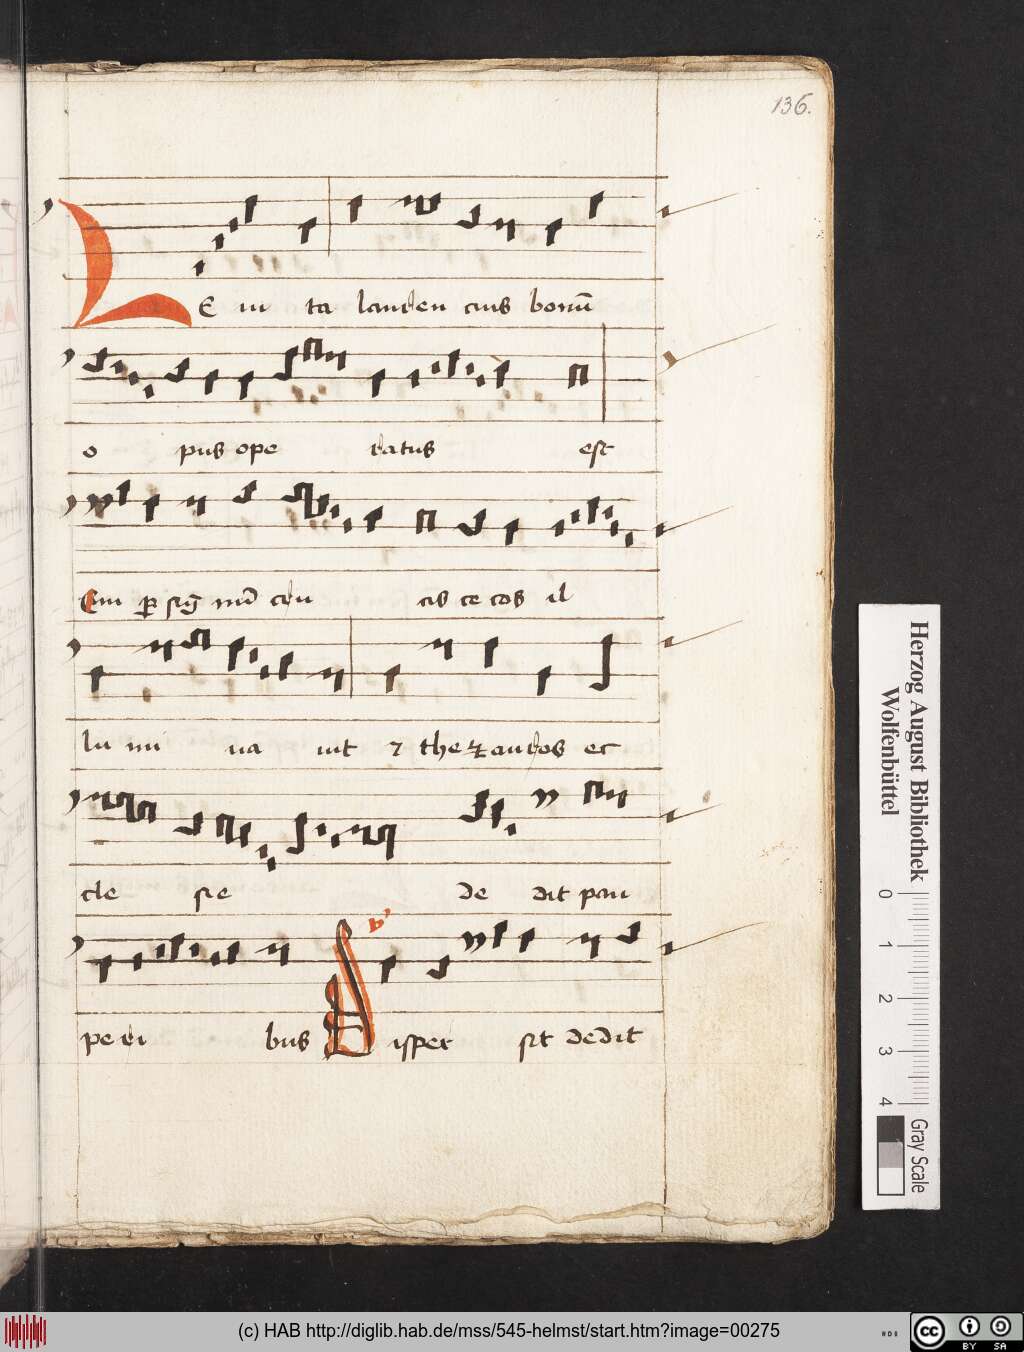 136.
LE ui ta lauden cuius bonū
o pus ope ratus est
Cui ꝑ sig̅ nū cru cis ce cos il
lu mi na uit ⁊ thezauros ec
cle sie de dit pau
peri bus Disper sit dedit
Herzog August Bibliothek
Wolfenbüttel
0 1 2 3 4
Gray Scale
(c) HAB http://diglib.hab.de/mss/545-helmst/start.htm?image=00275
cc BY SA